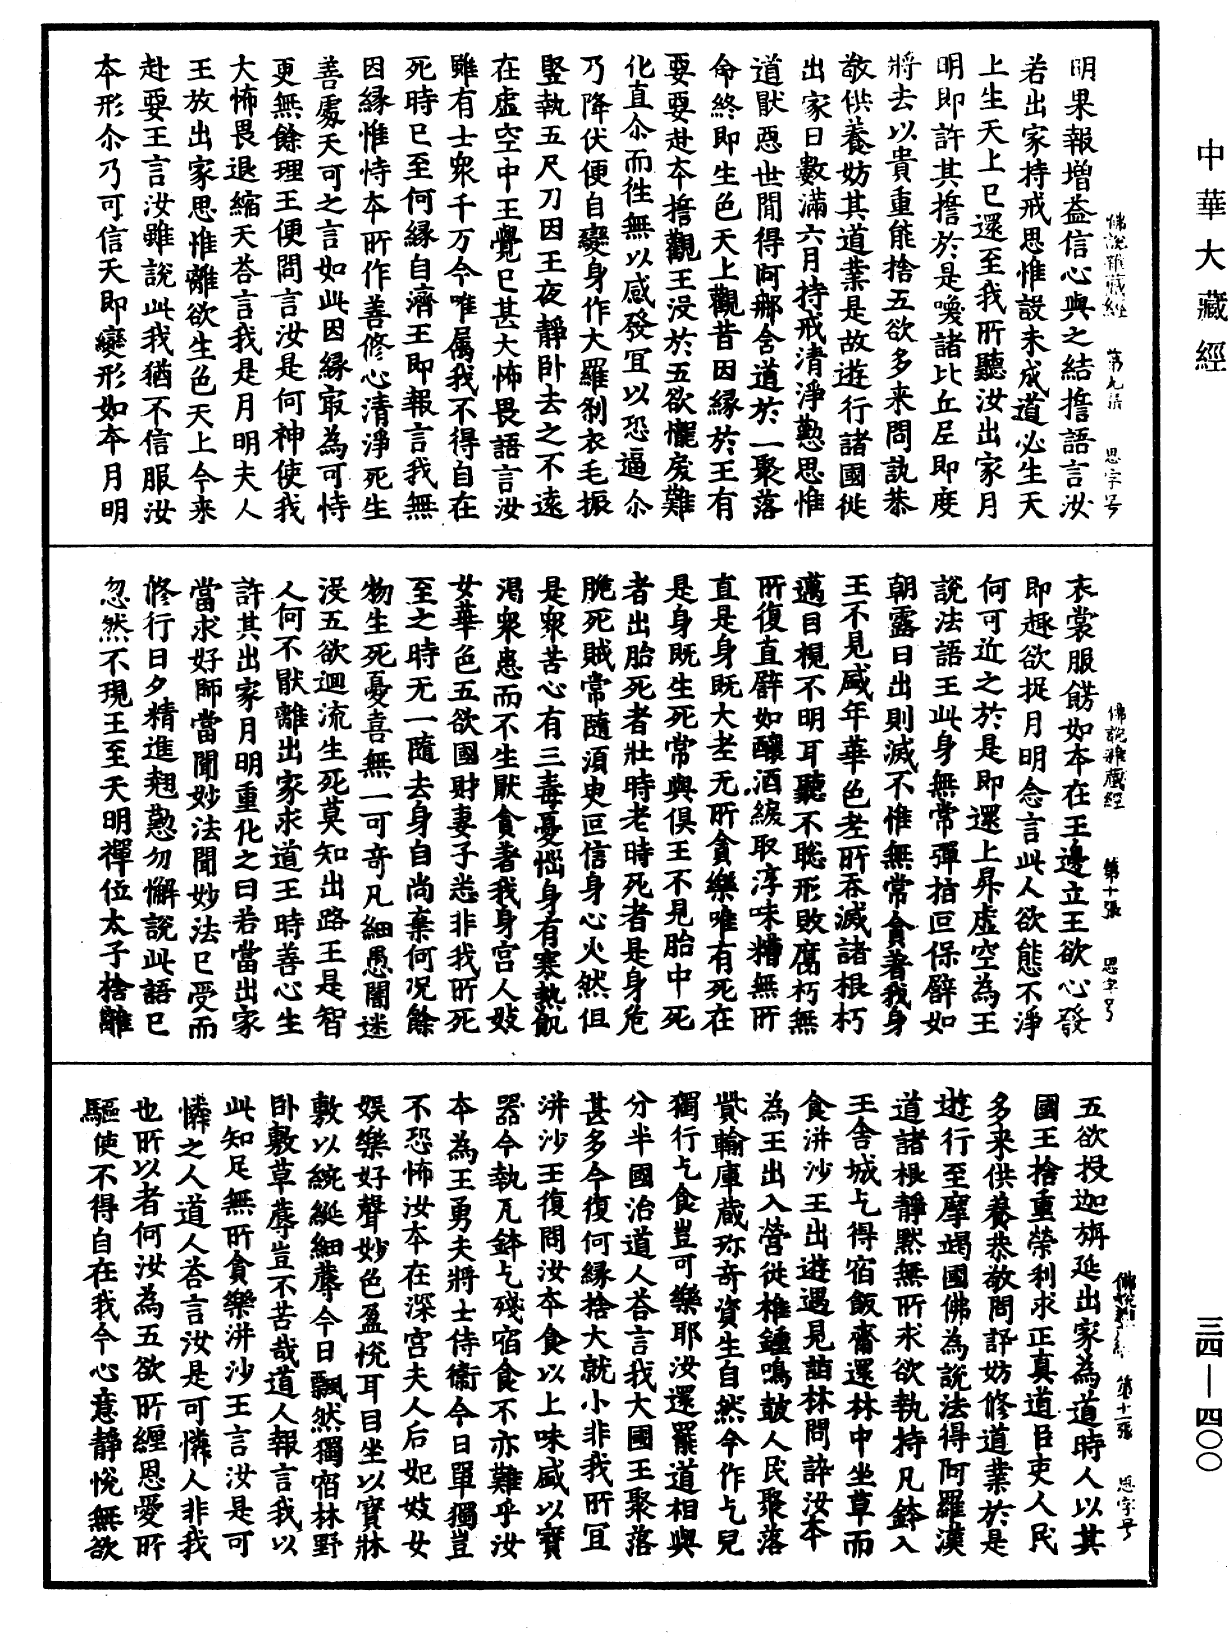 中華大藏經
佛說雜藏經 第九張 思字号
明果報增益信心與之結擔語言汝
若出家持戒思惟設未成道必生天
上生天上已還至我所聽汝出家月
明即許其擔於是喚諸比丘尼即度
將去以貴重能捨五欲多来問訊恭
敬供養妨其道業是故遊行諸國從
出家日數滿六月持戒清淨懃思惟
道猒惡世間得阿那舍道於一聚落
命終即生色天上觀昔因緣於王有
要要赴本擔觀王没於五欲懺㞐難
化直尒而徃無以感發冝以恐逼尒
乃降伏便自變身作大羅剎衣毛振
竪執五尺刀因王夜靜卧去之不遠
在虛空中王覺已甚大怖畏語言汝
雖有士衆千万今唯屬我不得自在
死時已至何緣自濟王即報言我無
因緣惟恃本所作善修心清淨死生
善處天可之言如此因緣㝡為可恃
更無餘理王便問言汝是何神使我
大怖畏退縮天荅言我是月明夫人
王放出家思惟離欲生色天上今来
赴要王言汝雖說此我猶不信服汝
本形尒乃可信天即變形如本月明
佛說雜藏經 第十張 思字号
衣裳服餝如本在王邊立王欲心發
即趣欲捉月明念言此人欲態不淨
何可近之於是即還上昇虛空為王
說法語王此身無常彈指叵保譬如
朝露日出則滅不惟無常貪著我身
王不見盛年華色老所吞滅諸根朽
邁目視不明耳聽不聡形敗腐朽無
所復直譬如釀酒㨨取淳味糟無所
直是身既大老无所貪樂唯有死在
是身既生死常與俱王不見胎中死
者出胎死者壯時老時死者是身危
脆死賊常隨須臾叵信身心火然但
是衆苦心有三毒憂惱身有寒熱飢
渴衆患而不生猒貪著我身宮人妓
女華色五欲國財妻子悉非我所死
至之時无一隨去身自尚棄何況餘
物生死憂喜無一可奇凡細愚闇迷
没五欲迴流生死莫知出路王是智
人何不猒離出家求道王時善心生
許其出家月明重化之曰若當出家
當求好師當聞妙法聞妙法已受而
修行日夕精進翹懃勿懈說此語已
忽然不現王至天明禪位太子捨離
佛說雜藏經 第十一張 思字号
五欲投迦旃延出家為道時人以其
國王捨重榮利求正真道臣吏人民
多来供養恭敬問訊妨修道業於是
遊行至摩竭國佛為說法得阿羅漢
道諸根靜默無所求欲執持凡鉢入
王舍城乞得宿飯齋還林中坐草而
食洴沙王出遊遇見詣林問訊汝本
為王出入營從椎鍾鳴皷人民聚落
貲輸庫藏珎奇資生自然今作乞兒
獨行乞食豈可樂耶汝還罷道相與
分半國治道人荅言我大國王聚落
甚多今復何緣捨大就小非我所冝
洴沙王復問汝本食以上味盛以寶
器今執瓦鉢乞殘宿食不亦難乎汝
本為王勇夫將士侍衞今日單獨豈
不恐怖汝本在深宮夫人后妃妓女
娛樂好聲妙色盈恱耳目坐以寶牀
敷以綩綖細蓐今日飄然獨宿林野
卧敷草蓐豈不苦哉道人報言我以
此知足無所貪樂洴沙王言汝是可
憐之人道人荅言汝是可憐人非我
也所以者何汝為五欲所纏恩愛所
驅使不得自在我今心意靜恱無欲
三四—四〇〇